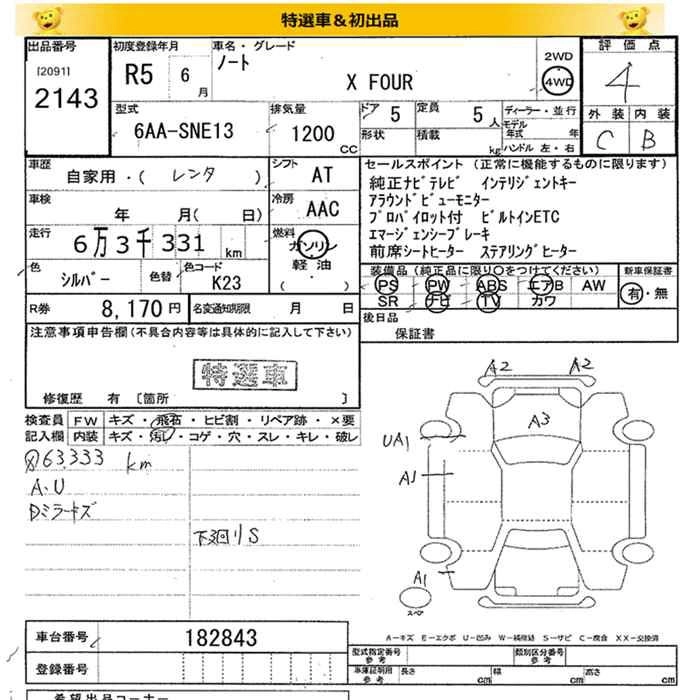 特選車＆初出品
出品番号
[2091]
2143
初度登録年月
R5 6月
車名・グレード
ノート
X FOUR
2WD
4WD
評価点
4
外装 内装
C B
型式
6AA-SNE13
排気量
1200 CC
ドア 5
形状
定員 5人
積載 kg
ディーラー・並行
モデル
年式 年
ハンドル 左・右
車歴
自家用・( レンタ )
シフト
AT
車検
年 月( 日)
冷房
AAC
走行
6万3千331 km
燃料
ガソリン
軽油
( )
色
シルバー
色替
色コード
K23
R券
8,170円
名変通知期限 月 日
セールスポイント (正常に機能するものに限ります)
純正ナビテレビ インテリジェントキー
アラウンドビューモニター
プロパイロット付 ビルトインETC
エマージェンシーブレーキ
前席シートヒーター ステアリングヒーター
装備品(純正品に限り○をつけてください)
PS PW ABS エアB AW
SR ナビ TV カワ
新車保証書
有・無
後日品
保証書
注意事項申告欄(不具合内容等は具体的に記入して下さい)
特選車
修復歴 有 [箇所 ]
検査員
記入欄
FW キズ・飛石・ヒビ割・リペア跡・×要
内装 キズ・汚レ・コゲ・穴・スレ・キレ・破レ
63,333 km
A・U
Dミラーキズ
下廻りS
A2 A2
A3
UA1
A1
A1
スペア
A－キズ E－エクボ U－凹み W－補修跡 S－サビ C－腐食 XX－交換済
車台番号
182843
登録番号
型式指定番号
参考
類別区分番号
参考
車庫証明記載
参考
長さ cm 幅 cm 高さ cm
希望出品コーナー